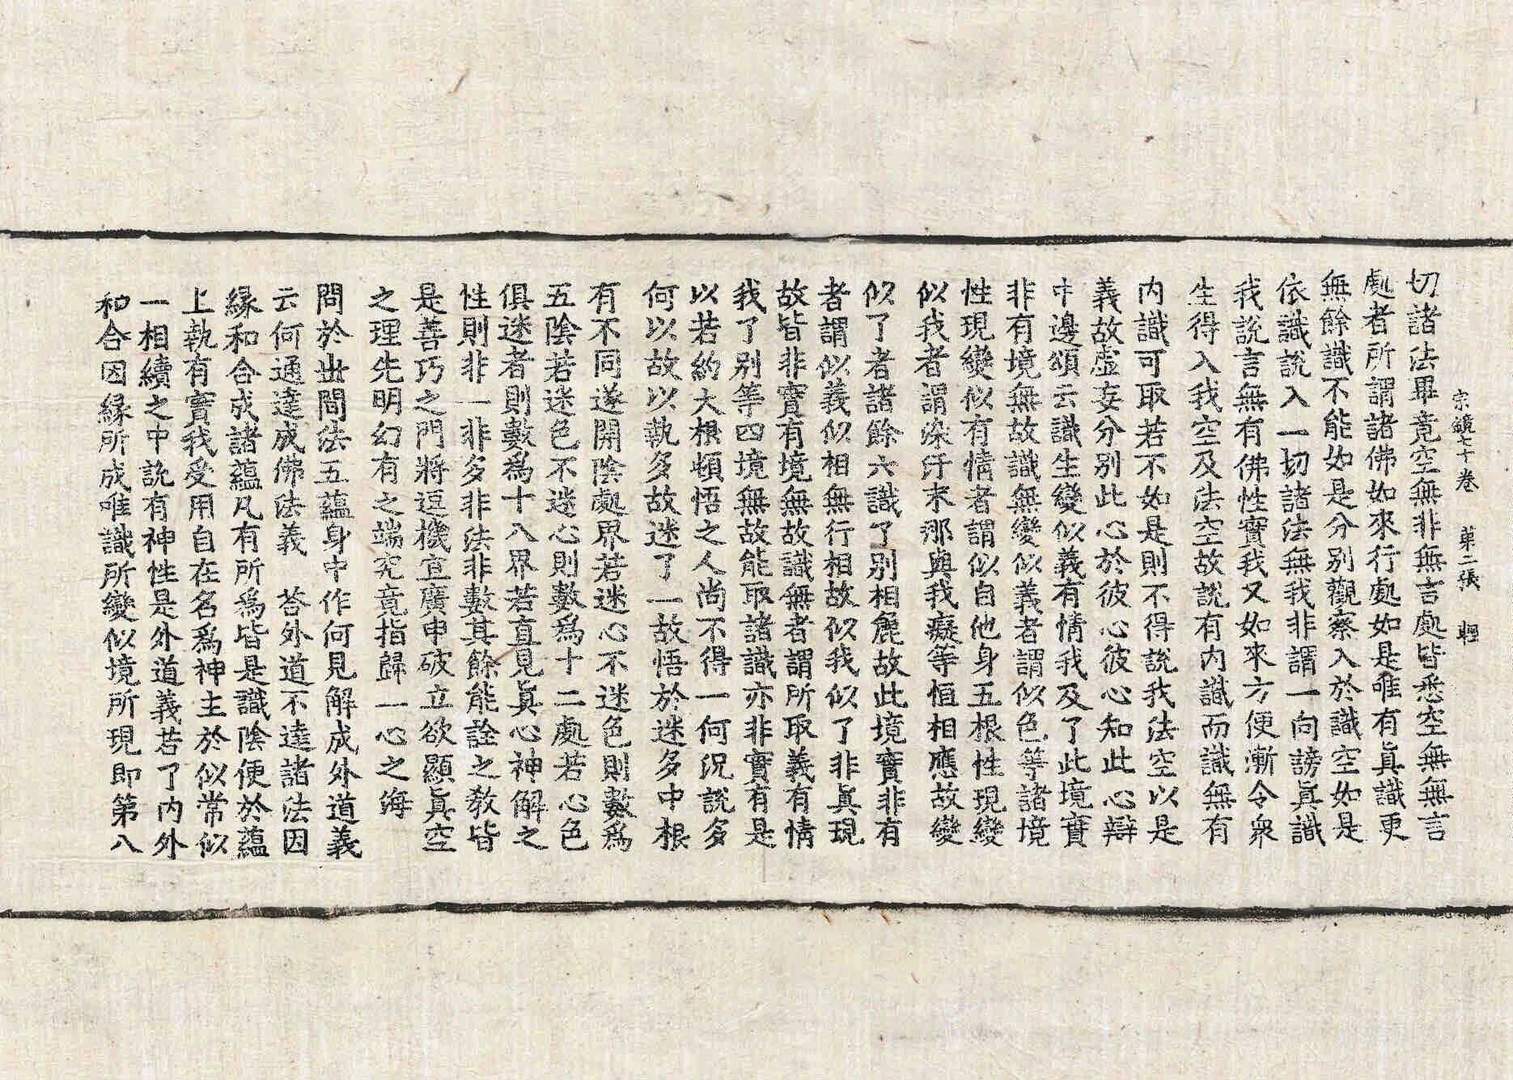 宗鏡七十卷 第二張 輕
切諸法畢竟空無非無言處皆悉空無無言
處者所謂諸佛如來行處如是唯有眞識更
無餘識不能如是分別觀察入於識空如是
依識說入一切諸法無我非謂一向謗眞識
我說言無有佛性實我又如來方便漸令衆
生得入我空及法空故說有內識而識無有
內識可取若不如是則不得說我法空以是
義故虛妄分別此心於彼心彼心知此心辯
中邊頌云識生變似義有情我及了此境實
非有境無故識無變似義者謂似色等諸境
性現變似有情者謂似自他身五根性現變
似我者謂染汙末那與我癡等恒相應故變
似了者諸餘六識了別相麁故此境實非有
者謂似義似相無行相故似我似了非眞現
故皆非實有境無故識無者謂所取義有情
我了別等四境無故能取諸識亦非實有是
以若約大根頓悟之人尚不得一何況說多
何以故故以執多故迷了一故悟於迷多中根
有不同遂開陰處界若迷心不迷色則數爲
五陰若迷色不迷心則數爲十二處若心色
俱迷者則數爲十八界若直見眞心神解之
性則非一非多非法非數其餘能詮之教皆
是善巧之門將逗機宜廣申破立欲顯眞空
之理先明幻有之端究竟指歸一心之海
問於世間法五蘊身中作何見解成外道義
云何通達成佛法義 答外道不達諸法因
緣和合成諸蘊凡有所爲皆是識陰便於蘊
上執有實我受用自在名爲神主於似常似
一相續之中說有神性是外道義若了內外
和合因緣所成唯識所變似境所現即第八